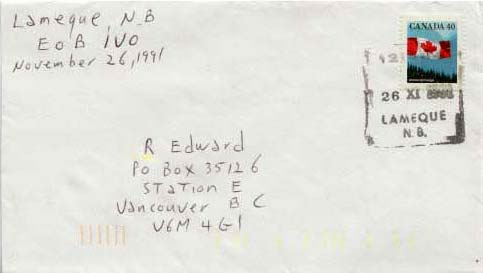 Lameque, N.B
EoB 1V0
November 26, 1991
CANADA 40
26 XI
LAMEQUE
N.B.
R Edward
Po Box 35126
STATION E
Vancouver B C
V6M 4G1